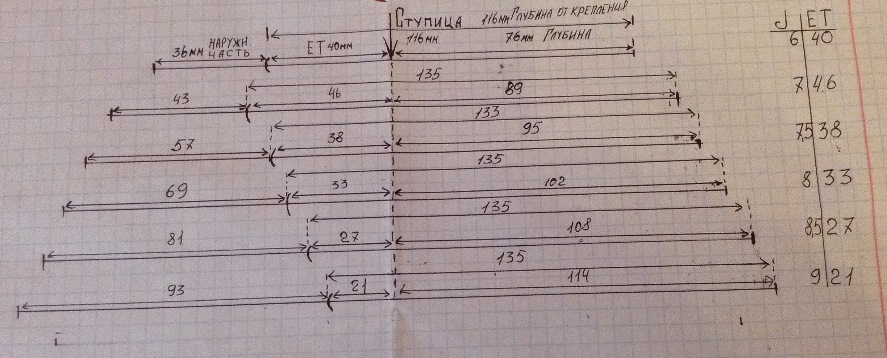 Ступица 116мм Глубина от крепления J ET
36мм Наружн. часть ET 40мм 116мм 76мм Глубина 6 40
135
43 46 89 7 46
133
57 38 95 7,5 38
135
69 33 102 8 33
135
81 27 108 8,5 27
135
93 21 114 9 21